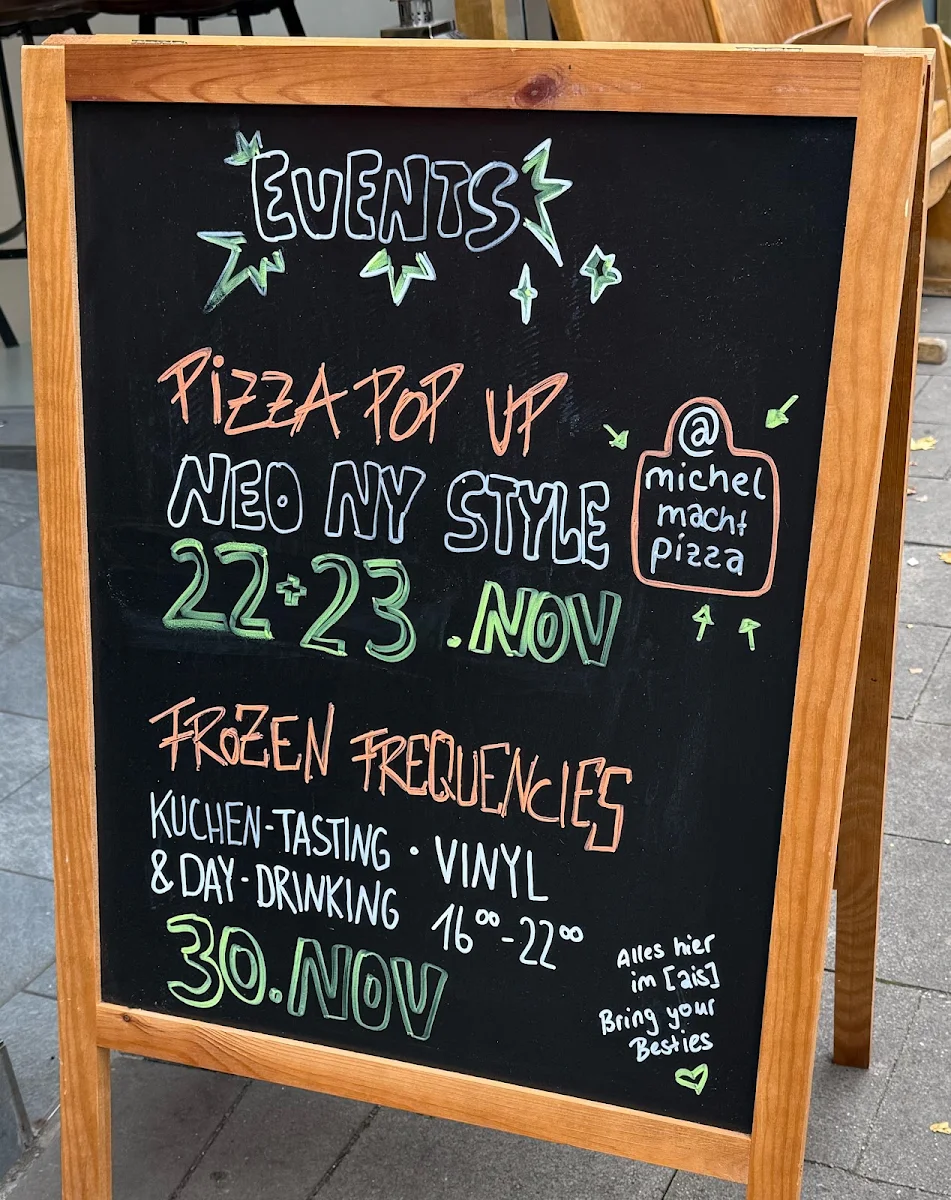 EVENTS
PiZZA POP UP
NEO NY STYLE
22+23 .NOV
@
michel
macht
pizza
FROZEN FREQUENCIES
KUCHEN-TASTING · VINYL
& DAY-DRINKING 16⁰⁰-22⁰⁰
30.NOV
Alles hier
im [ais]
Bring your
Besties